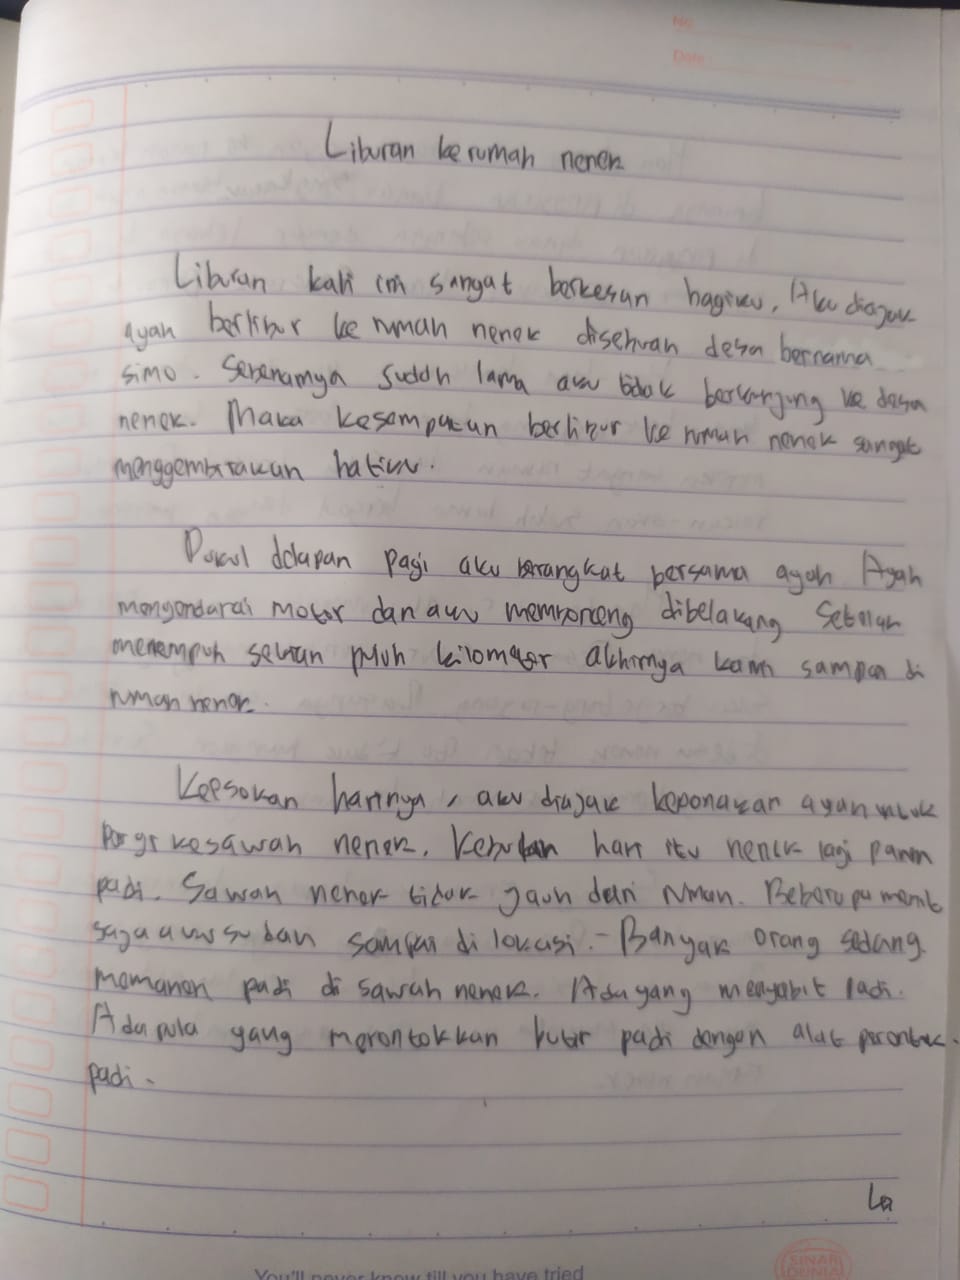 No
Date
Liburan ke rumah nenek
Liburan kali ini sangat berkesan bagiku. Aku diajak
ayah berlibur ke rumah nenek disebuah desa bernama
simo. Sebenarnya sudah lama aku tidak berkunjung ke desa
nenek. Maka kesempatan berlibur ke rumah nenek sangat
menggembirakan hatiku.
Pukul delapan pagi aku berangkat bersama ayah Ayah
mengendarai motor dan aku memboneng dibelakang Setelah
menempuh sekian puluh kilometer akhirnya kami sampai di
rumah nenek.
Keesokan harinya, aku diajak keponakan ayah untuk
pergi kesawah nenek. Kebetulan hari itu nenek lagi panen
padi. Sawah nenek tidak jauh dari rumah. Beberapa menit
saja aku sudah sampai di lokasi. - Banyak orang sedang
memanen padi di sawah nenek. Ada yang menyabit padi.
Ada pula yang merontokkan butir padi dengan alat perontok
padi.
You'll never know till you have tried
SINAR
DUNIA